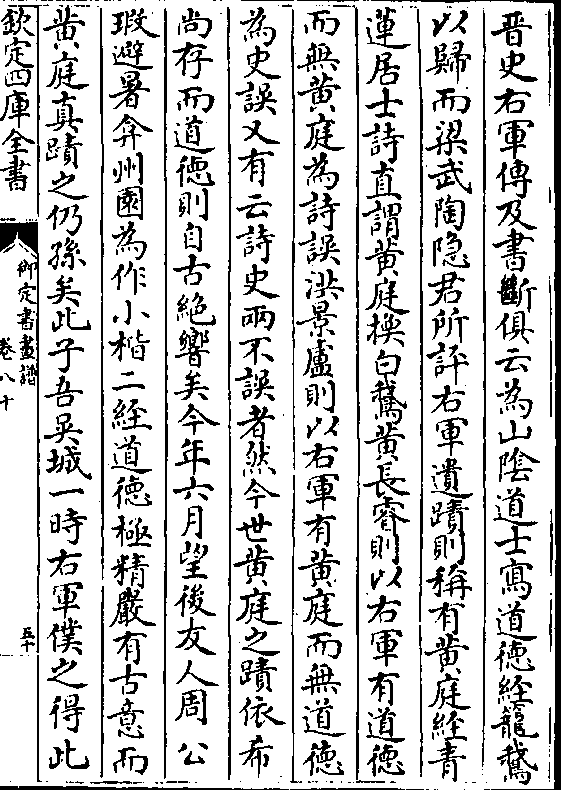 晋史右軍傳及書斷俱云為山陰道士寫道徳經籠鵞
以歸而梁武陶隐君所評右軍遺蹟則稱有黄庭經青
蓮居士詩直謂黄庭換白鵞黄長睿則以右軍有道徳
而無黄庭為詩誤洪景盧則以右軍有黄庭而無道徳
為史誤又有云詩史兩不誤者然今世黄庭之蹟依希
尚存而道徳則自古絶響矣今年六月望後友人周公
瑕避暑弇州園為作小楷二經道徳極精嚴有古意而
黄庭真蹟之仍孫矣此子吾吳城一時右軍僕之得此
欽定四庫全書
御定書畫譜
卷八十
五十